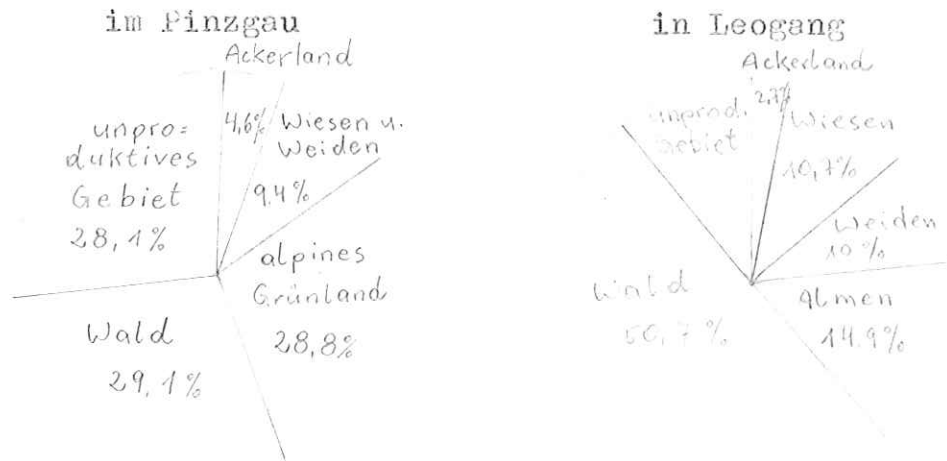 im Pinzgau
Ackerland
4,6%
Wiesen u.
Weiden
9.4%
unpro=
duktives
Gebiet
28,1%
alpines
Grünland
28,8%
Wald
29,1%
in Leogang
Ackerland
2,7%
unprod.
Gebiet
Wiesen
10,7%
Weiden
10%
Almen
14.9%
Wald
50,7%